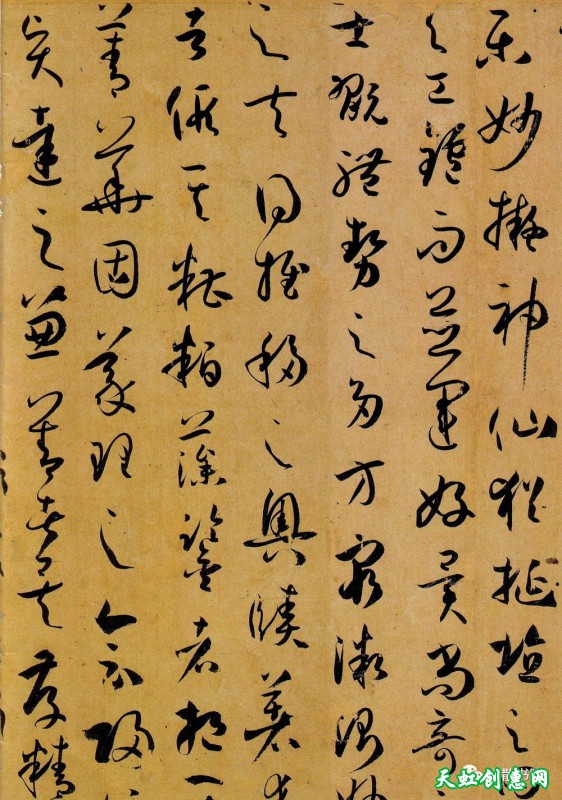 樂妙擬神仙猶埏埴之罔
與工鑪而並運好異尚奇
士翫體勢之多方窮微測妙
之夫同推移之奧賾著述
者假其糟粕藻鑒者挹
菁華固義理之會歸
賢達之兼善者矣存精
天虹创惠网